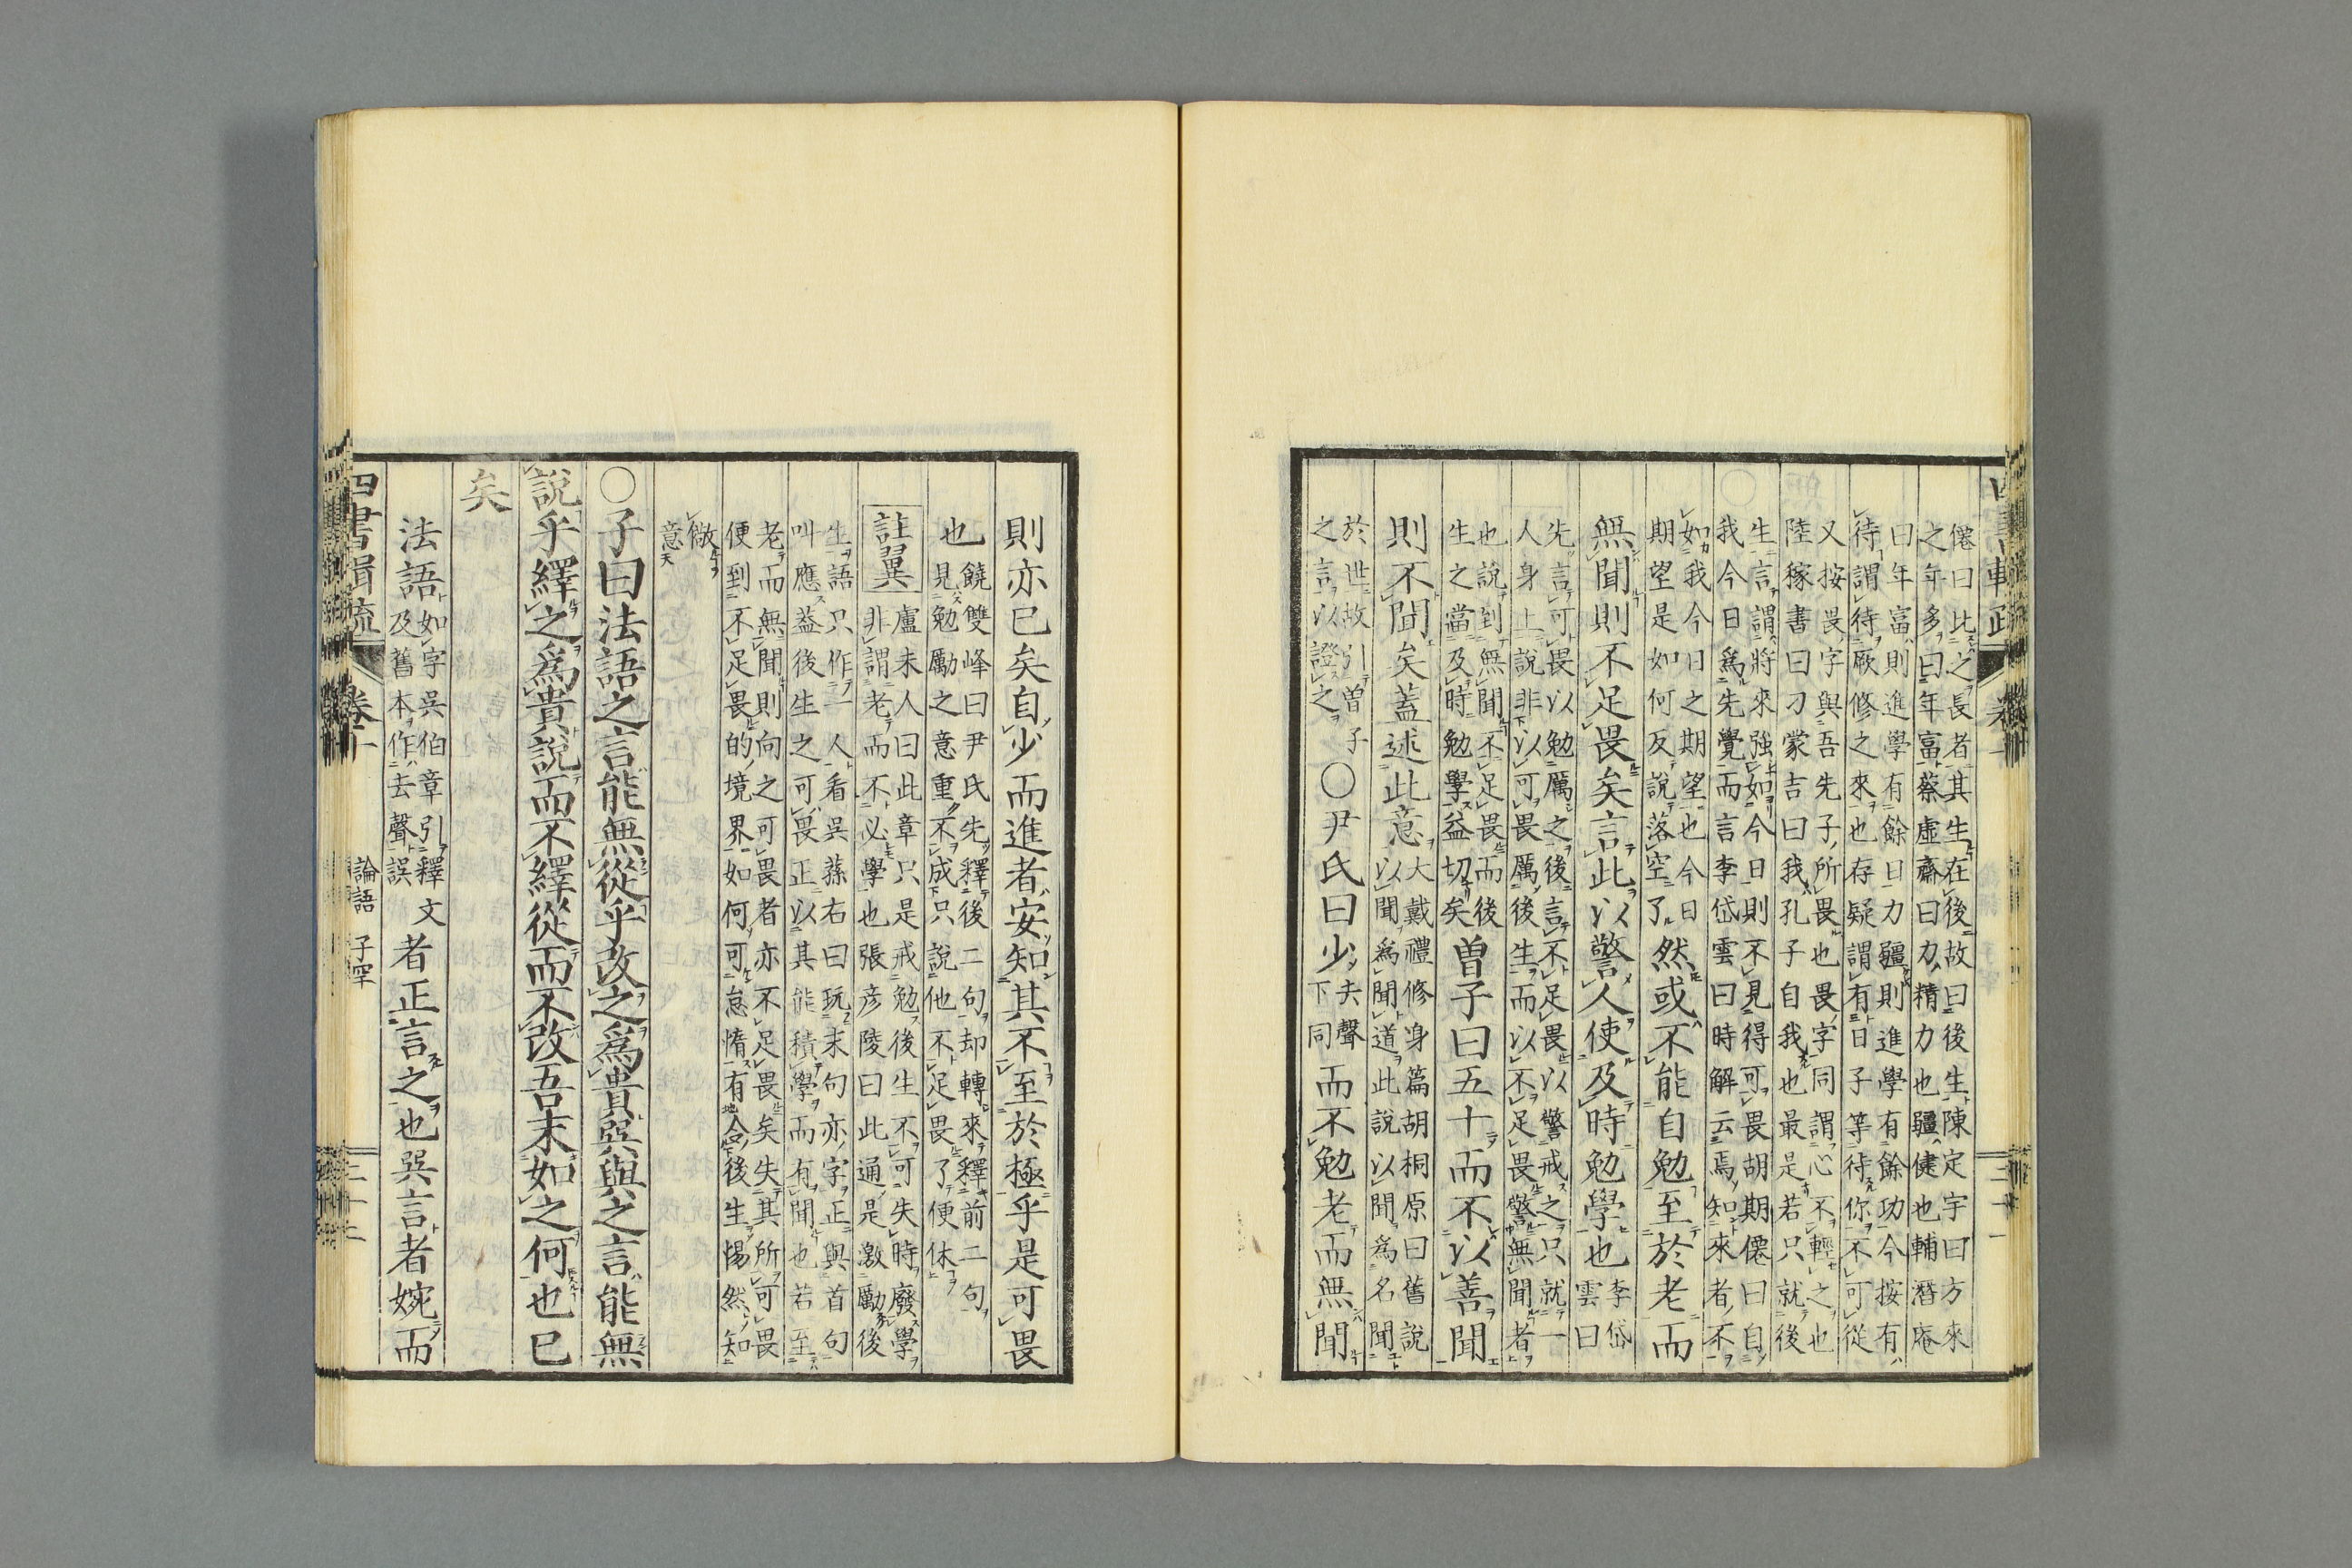 僊曰此之長者其生在後故曰後生陳定宇曰方來
之年多曰年富蔡虛齋曰力精力也疆健也輔潛庵
曰年富則進學有餘日力疆則進學有餘功今按有
待謂待厥修之來也存疑謂有日子等待你不可從
又按畏字與吾先子所畏也畏字同謂心不輕之也
陸稼書曰刁蒙吉曰我孔子自我也最是若只就後
生言謂將來強如今日則不見得可畏胡期僊曰自
我今日爲先覺而言李岱雲曰時解云焉知來者不
如我今日之期望也今日
期望是如何反說落空了
然或不能自勉至於老而
無聞則不足畏矣言此以警人使及時勉學也
李岱
雲曰
先言可畏以勉厲之後言不足畏以警戒之只就一
人身上說非以可畏厲後生而以不足畏警無聞者
也說到無聞不足畏而後
生之當及時勉學益切矣
曽子曰五十而不以善聞
則不聞矣蓋述此意
大戴禮修身篇胡桐原曰舊說
以聞爲聞道此說以聞爲名聞
於世故引曽子
之言以證之
○尹氏曰少
去聲
下同
而不勉老而無聞
則亦已矣自少而進者安知其不至於極乎是可畏
也
饒雙峰曰尹氏先釋後二句却轉來釋前二句
見勉勵之意重不成只說他不足畏了便休
註翼
盧未人曰此章只是戒勉後生不可失時廢學
非謂老而不必學也張彦陵曰此通是激勵後
生語只作一人看吳蓀右曰玩末句亦字正與首句
叫應葢後生之可畏正以其能積學而有聞也若至
老而無聞則向之可畏者亦不足畏矣失其所可畏
便到不足畏的境界如何可怠惰有合後生惕然知
儆
意
○子曰法語之言能無從乎改之爲貴巽與之言能無
說乎繹之爲貴說而不繹從而不改吾末如之何也已
矣
法語
如字吳伯章引釋文
及舊本作去聲誤
者正言之也巽言者婉而
四書
卷十
論語
子罕